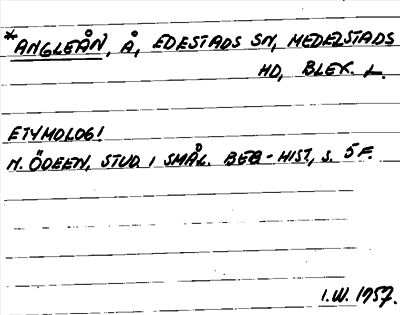 *ANGLEÅN, Å, EDESTADS SN, MEDELSTADS
HD, BLEK. L.
ETYMOLOG!
N. ÖDEEN, STUD. I SMÅL. BEB-HIST, S. 5 F.
I.W. 1957.